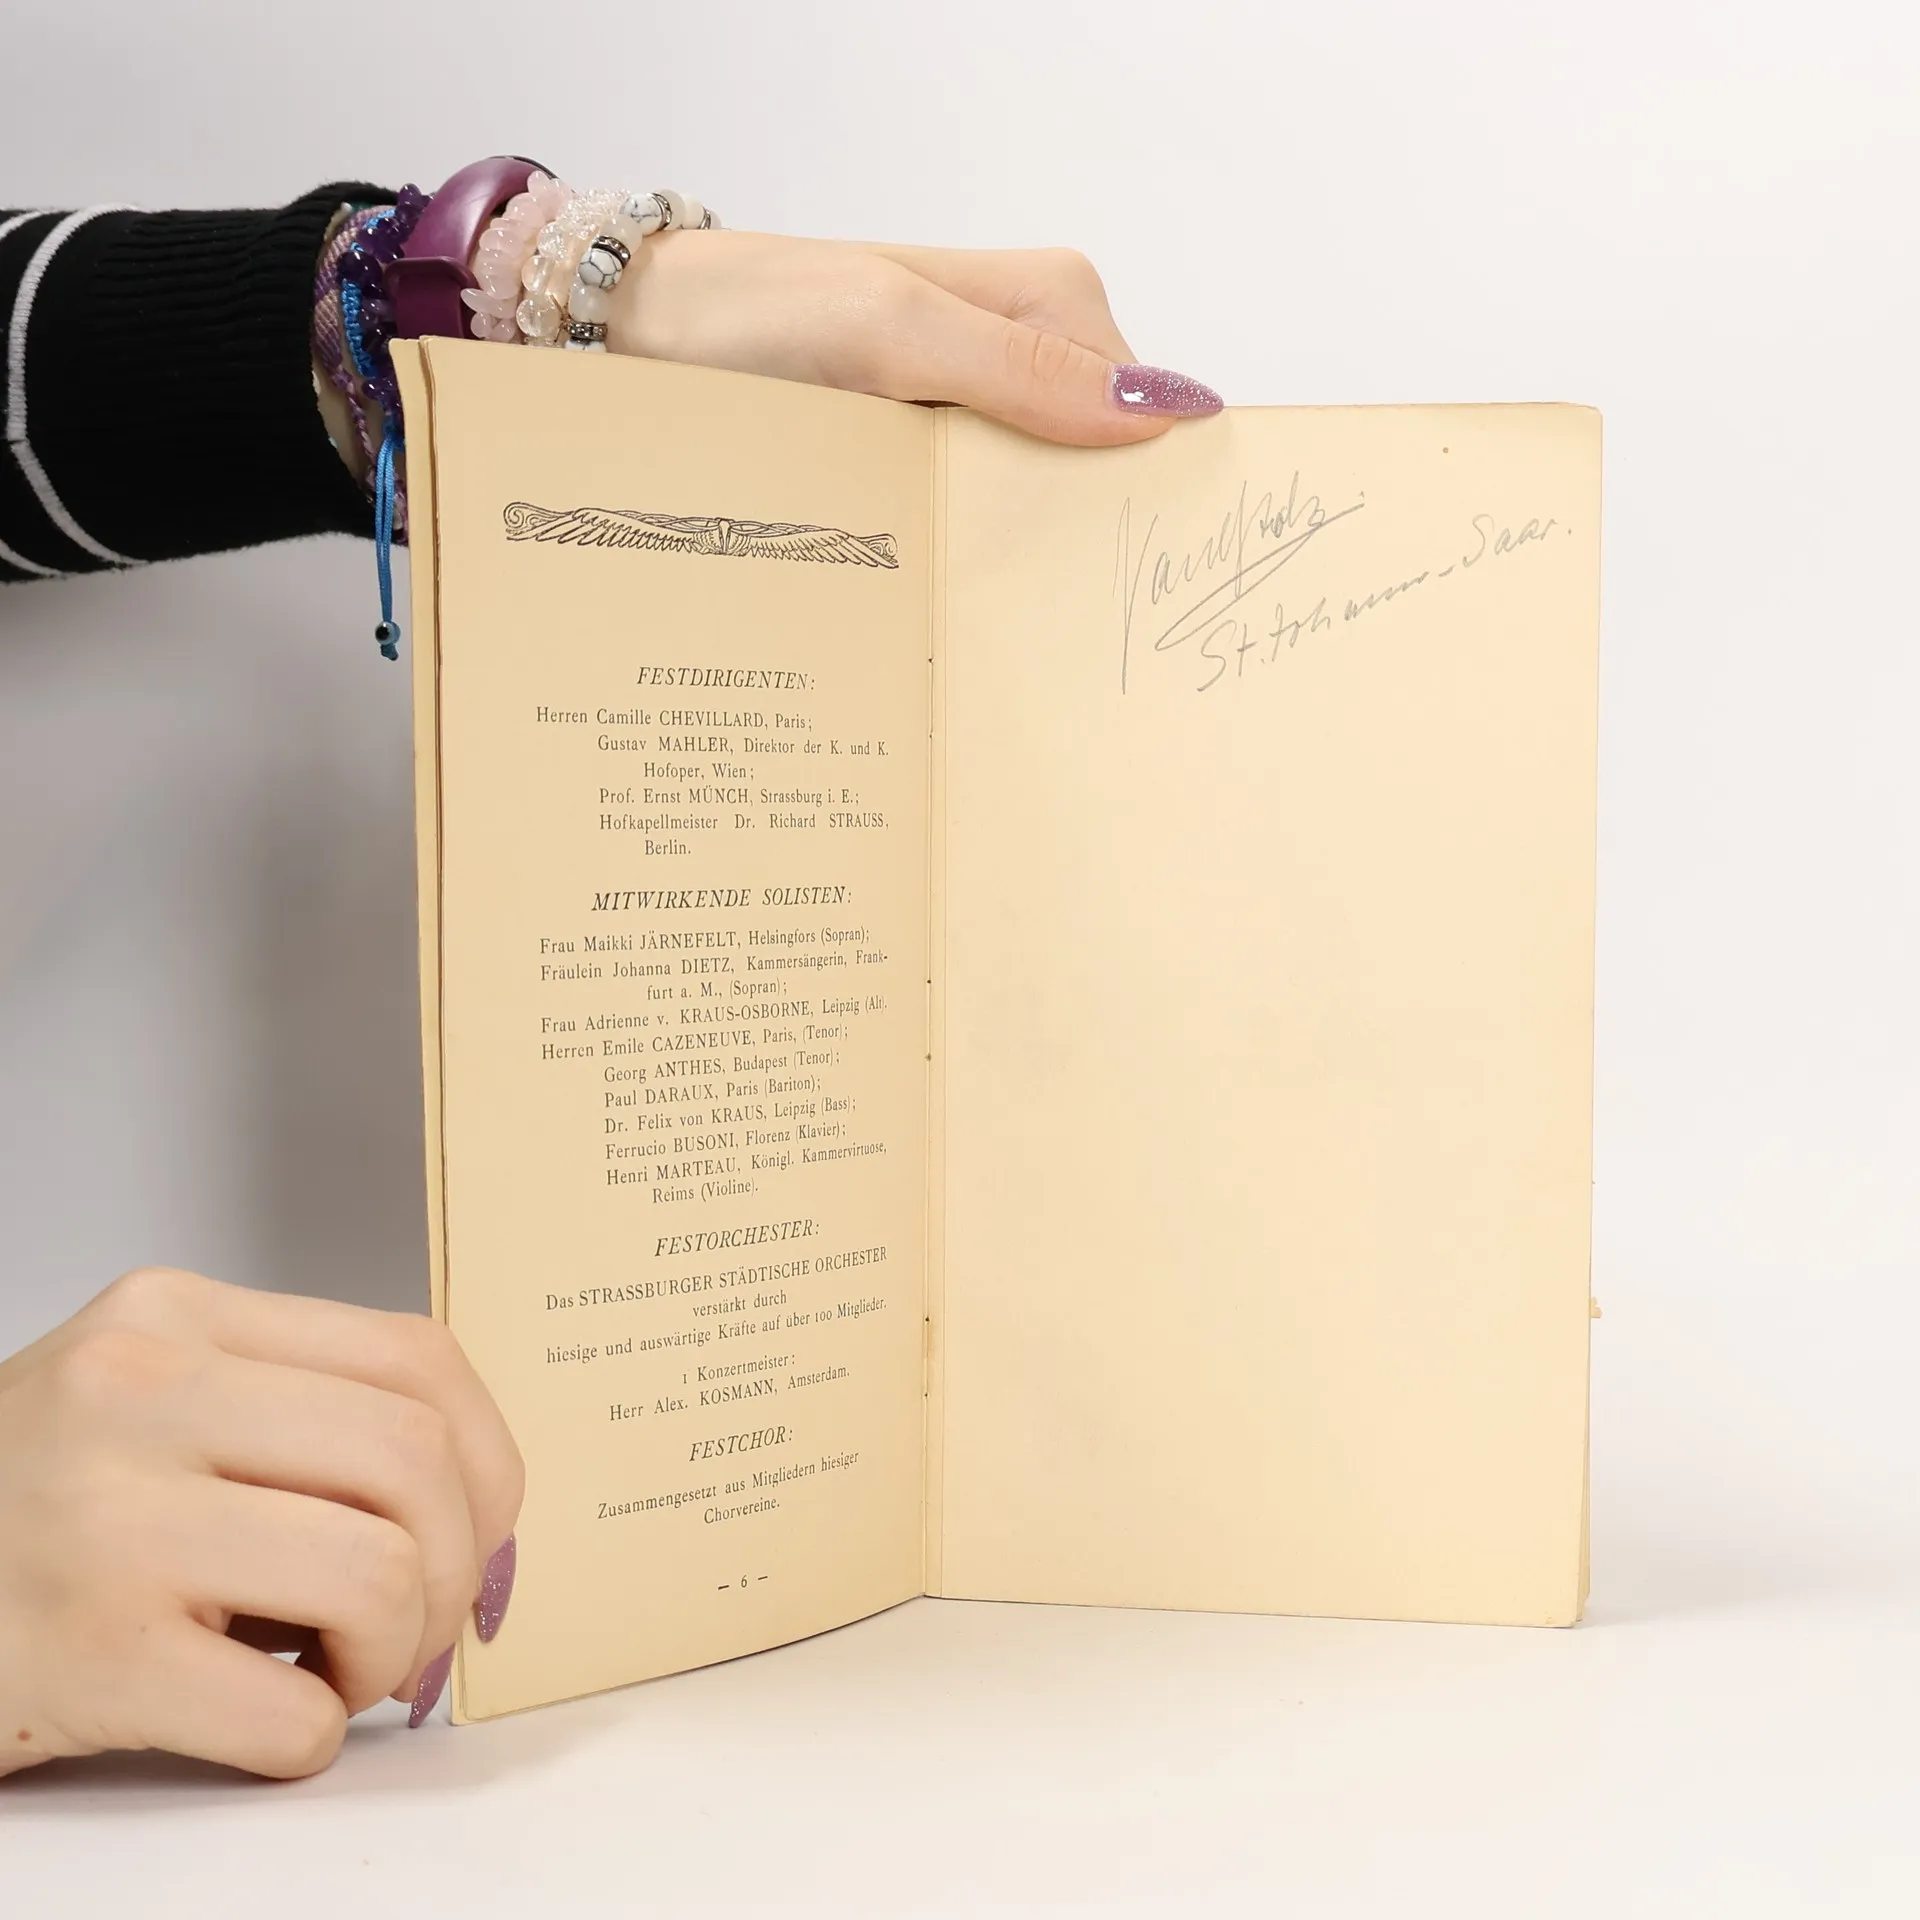 FESTDIRIGENTEN:
Herren Camille CHEVILLARD, Paris;
Gustav MAHLER, Direktor der K. und K.
Hofoper, Wien;
Prof. Ernst MÜNCH, Strassburg i. E.;
Hofkapellmeister Dr. Richard STRAUSS,
Berlin.
MITWIRKENDE SOLISTEN:
Frau Maikki JÄRNEFELT, Helsingfors (Sopran);
Fräulein Johanna DIETZ, Kammersängerin, Frank-
furt a. M., (Sopran);
Frau Adrienne v. KRAUS-OSBORNE, Leipzig (Alt).
Herren Emile CAZENEUVE, Paris, (Tenor);
Georg ANTHES, Budapest (Tenor);
Paul DARAUX, Paris (Bariton);
Dr. Felix von KRAUS, Leipzig (Bass);
Ferrucio BUSONI, Florenz (Klavier);
Henri MARTEAU, Königl. Kammervirtuose,
Reims (Violine).
FESTORCHESTER:
Das STRASSBURGER STÄDTISCHE ORCHESTER
verstärkt durch
hiesige und auswärtige Kräfte auf über 100 Mitglieder.
1 Konzertmeister:
Herr Alex. KOSMANN, Amsterdam.
FESTCHOR:
Zusammengesetzt aus Mitgliedern hiesiger
Chorvereine.
– 6 –
St. Johann-Saar.